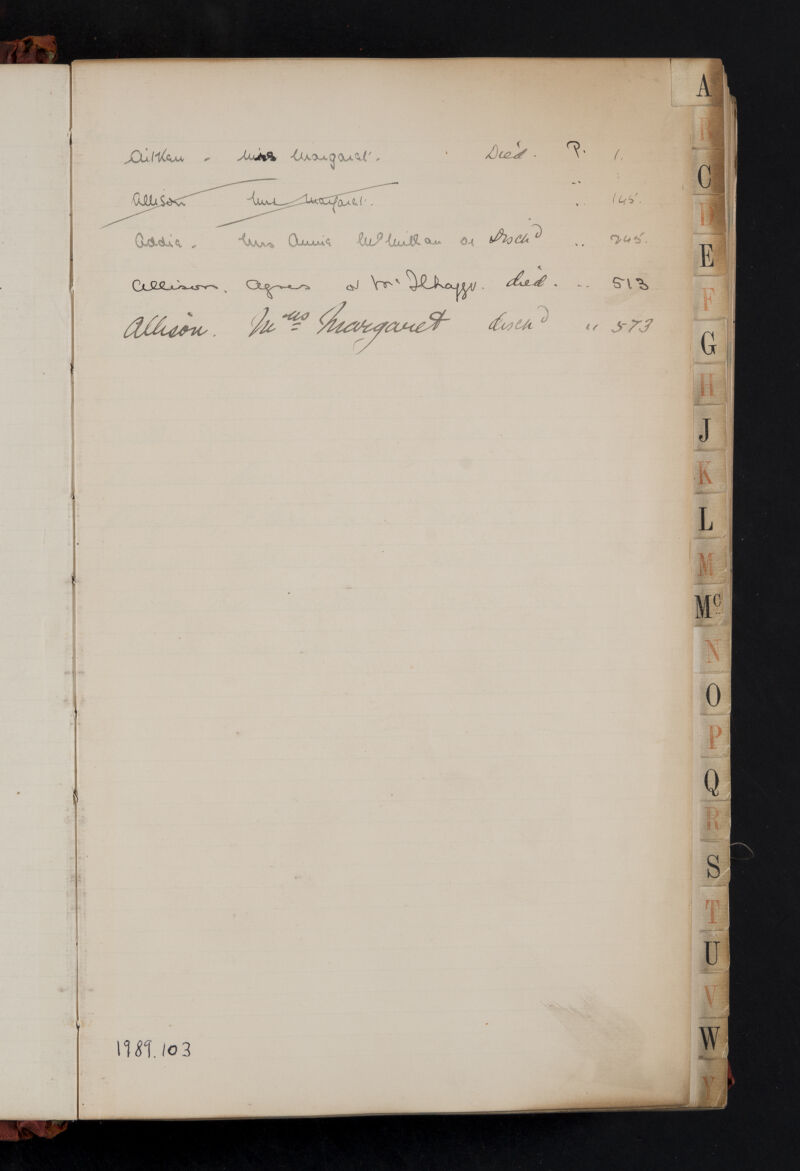 A
Aitken - Miss Margaret. Died. P. 1.
B
Allison Mrs Margaret. .. 145.
C
D
Addie - Mrs Annie McMillan or Disch^d .. 245.
E
Allison. Agnes or Mc Ilhaggo. died. .. 513
F
Allison. M^rs Margaret disch^d " 573
G
H
J
K
L
M
M^c
N
O
P
Q
R
S
T
U
V
W
Y
1989.103